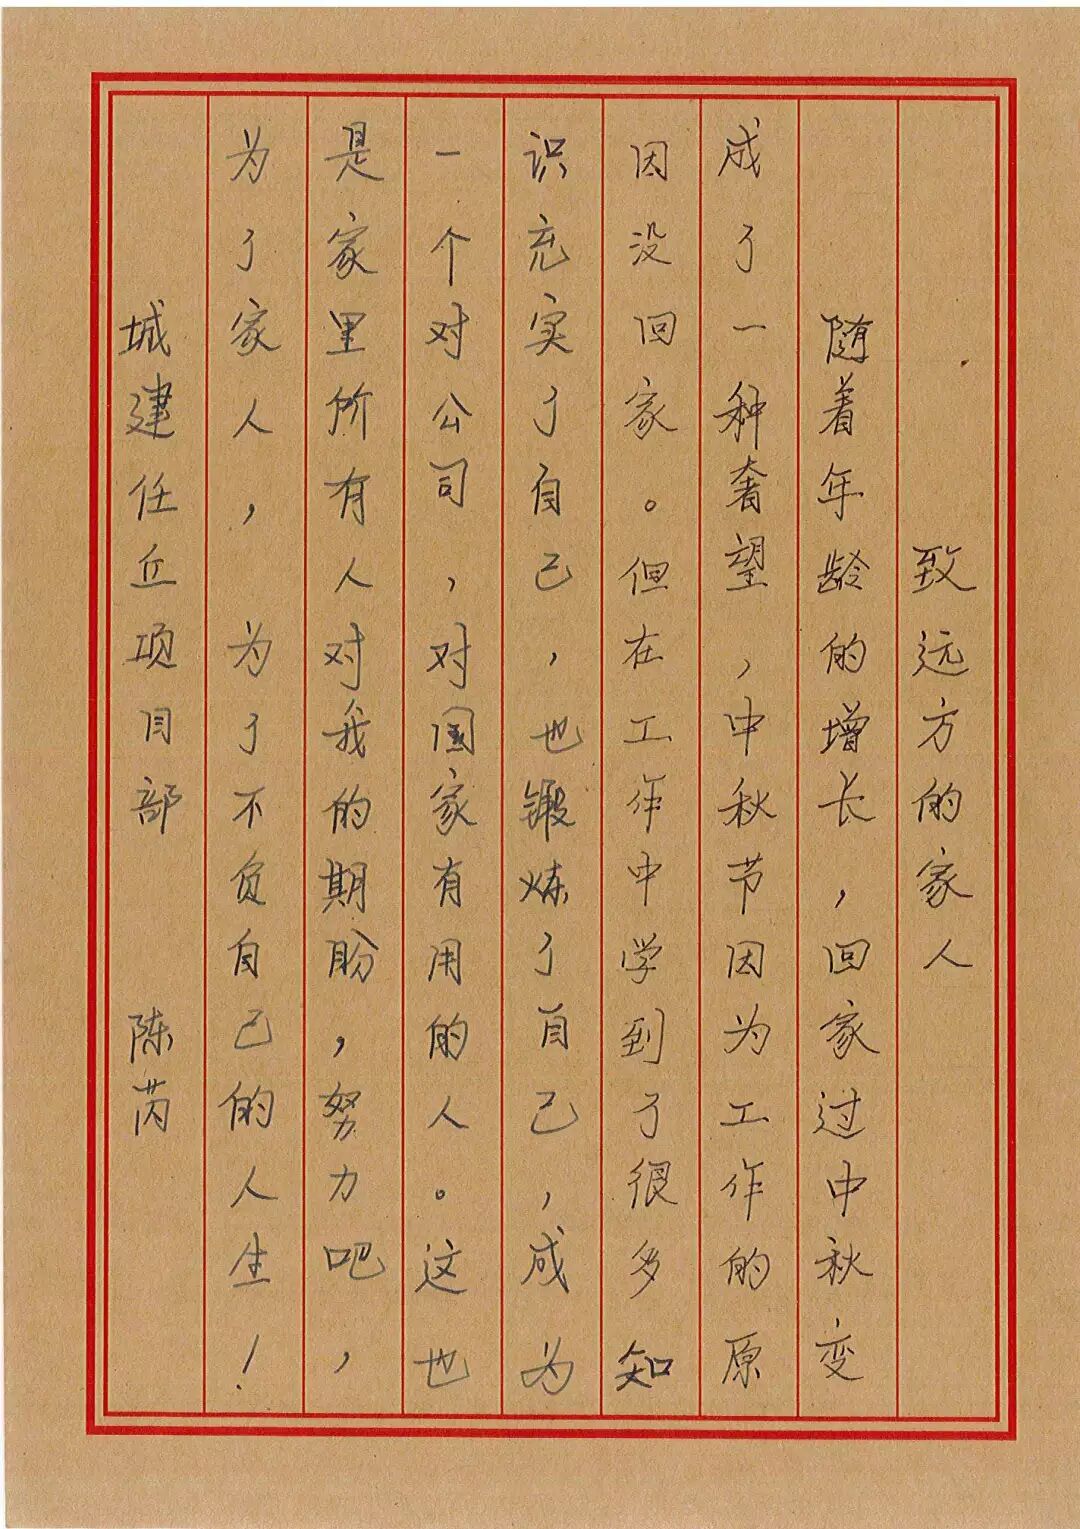 致远方的家人
随着年龄的增长，回家过中秋变
成了一种奢望，中秋节因为工作的原
因没回家。但在工作中学到了很多知
识充实了自己，也锻炼了自己，成为
一个对公司，对国家有用的人。这也
是家里所有人对我的期盼，努力吧，
为了家人，为了不负自己的人生！
城建任丘项目部 陈芮